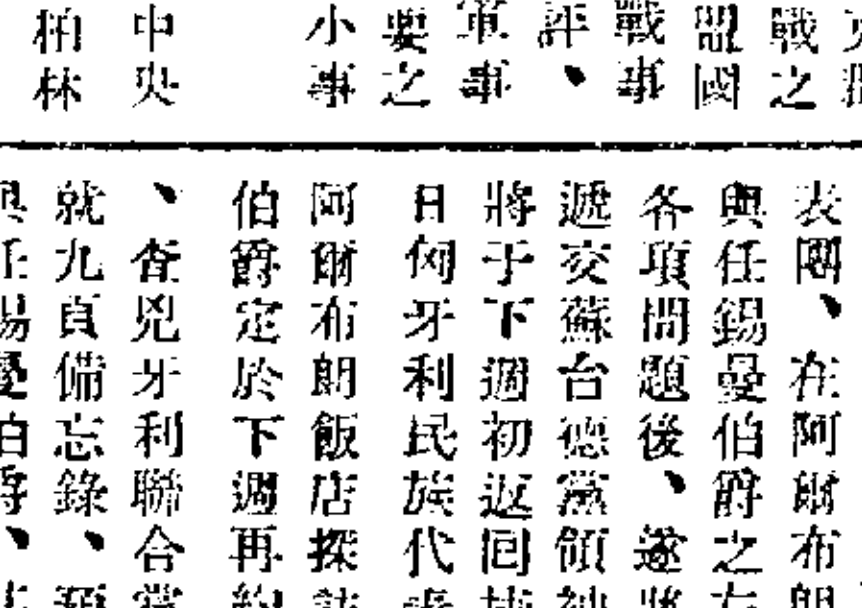 戰之
盟國
戰事
評、
軍事
要之
小事
中央
柏林
表團、在阿爾布朗
與任錫曼伯爵之
各項問題後、遂將
遞交蘇台德黨領袖
將于下週初返囘
日匈牙利民族代表
阿爾布朗飯店探訪
伯爵定於下週再約
、查兇牙利聯合黨
就九頁備忘錄、
與任錫曼伯爵、